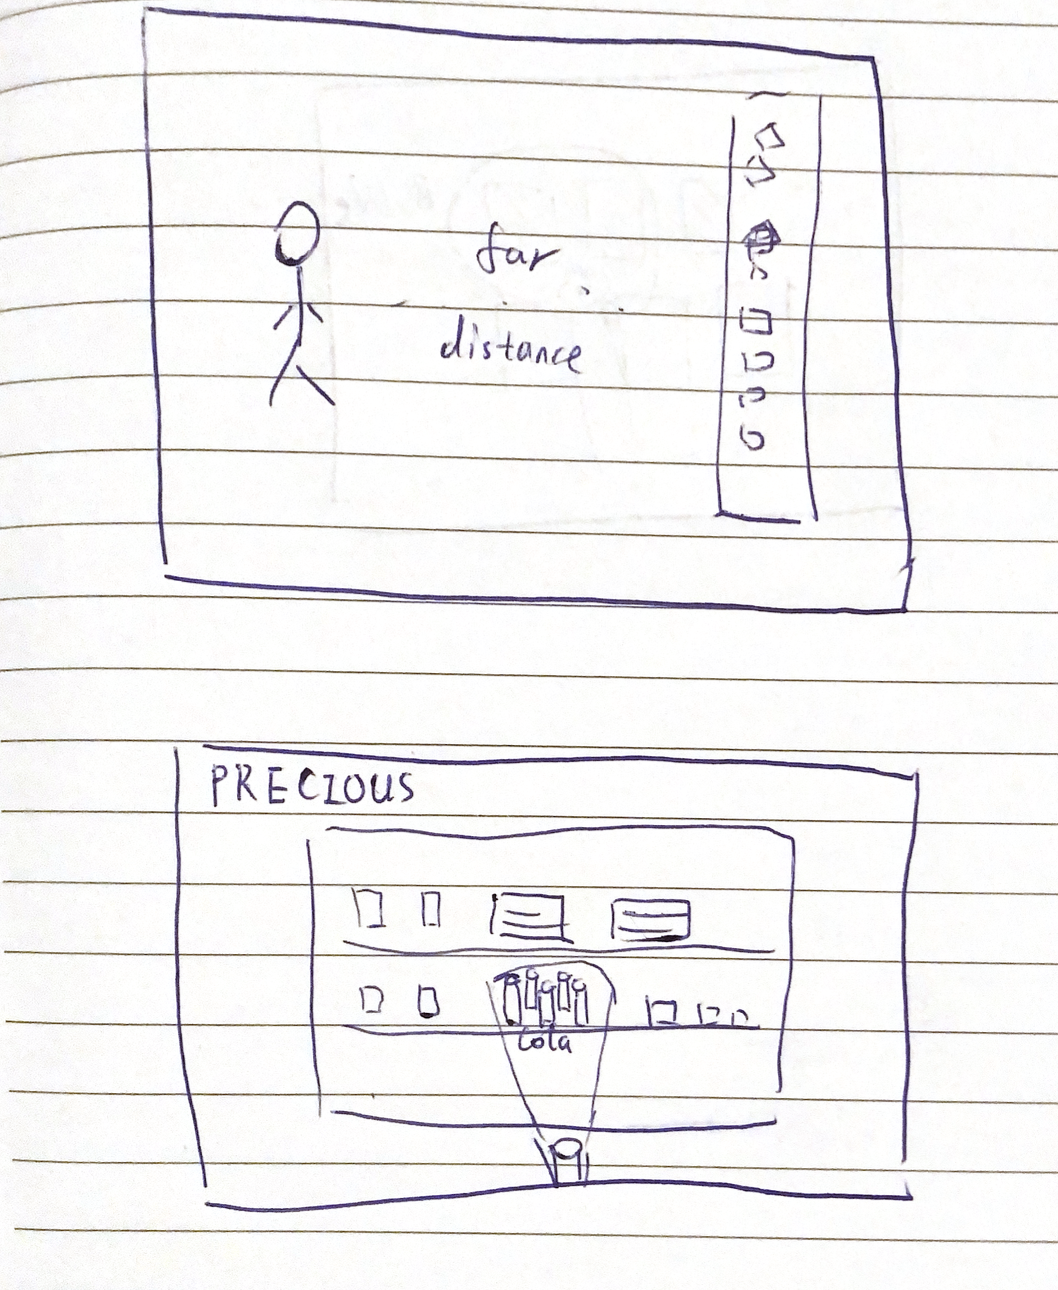 far
distance
PRECIOUS
Cola